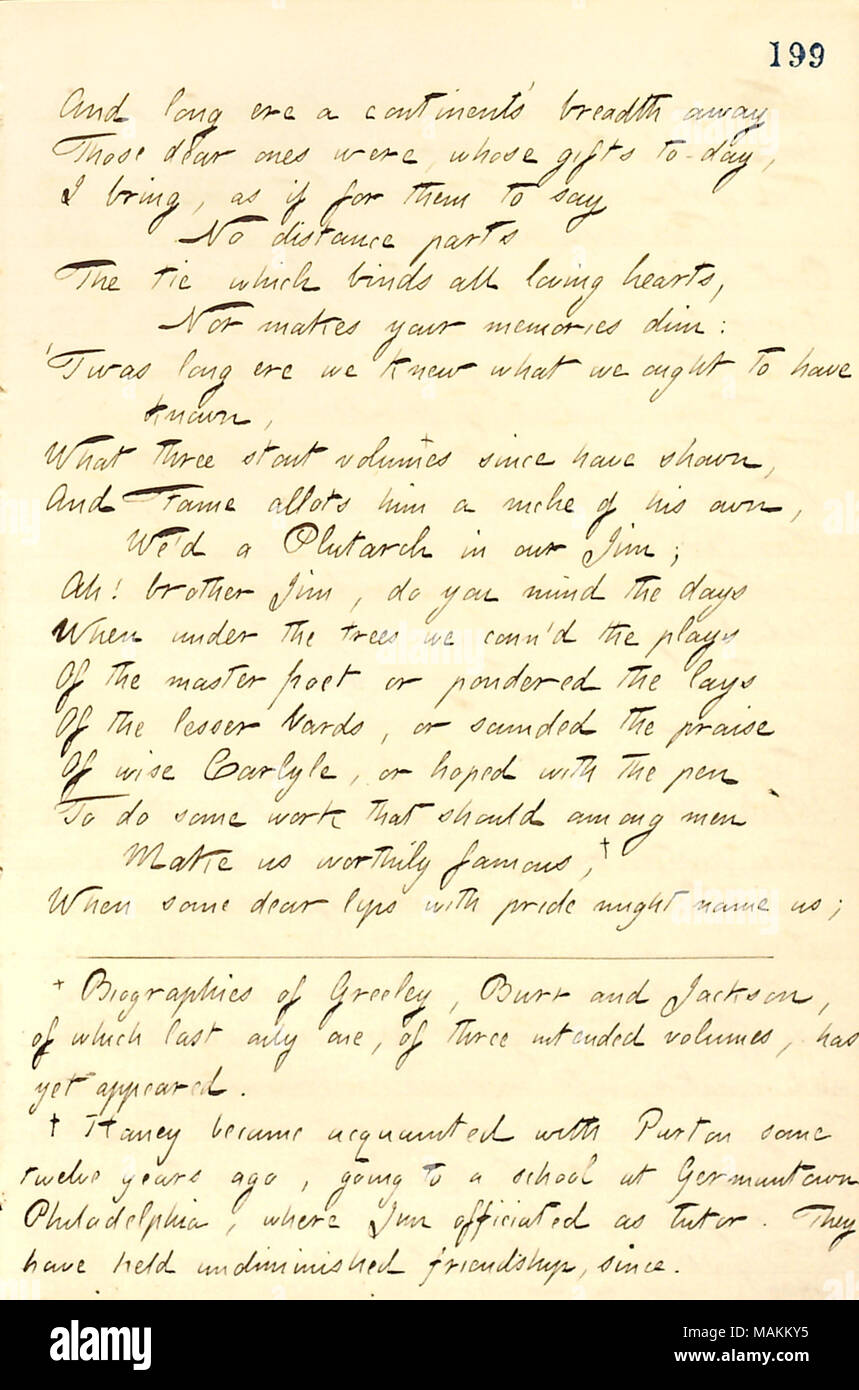 199
And long ere a continent's breadth away
Those dear ones were, whose gifts to-day,
I bring, as if for them to say
No distance parts
The tie which binds all loving hearts,
Nor makes your memories dim:
'Twas long ere we knew what we ought to have
known,
What three stout volumes since have shown,
And Fame allots him a niche of his own,
We'd a Plutarch in our Jim;
Ah! brother Jim, do you mind the days
When under the trees we conn'd the plays
Of the master poet or pondered the lays
Of the lesser bards, or sounded the praise
Of wise Carlyle, or hoped with the pen
To do some work that should among men
Make us worthily famous,†
When some dear lips with pride might name us;
† Biographies of Greeley, Burr and Jackson,
of which last only one, of three intended volumes, has
yet appeared.
† Haney became acquainted with Parton some
twelve years ago, going to a school at Germantown
Philadelphia, where Jim officiated as tutor. They
have held undiminished friendship, since.
alamy
Image ID: MAKKY5
www.alamy.com